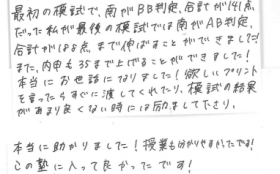 最初の模試で、南がBB判定、合計が141点
だった私が最後の模試では南がAB判定、
合計が188点まで伸ばすことができました!
また、内申も35まで上げることができました!
本当にお世話になりました!欲しいプリント
を言ったらすぐに渡してくれたり、模試の結果
があまり良くない時には励ましてくれたり、
本当に助かりました!授業も分かりやすかったです!
この塾に入って良かったです!